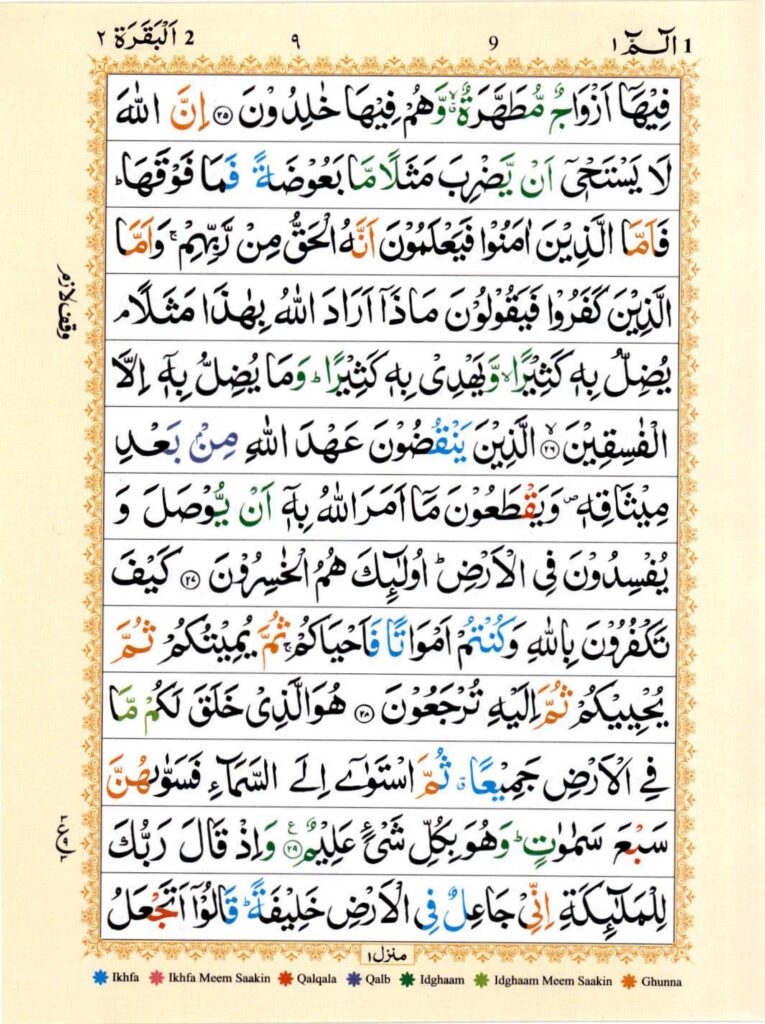 الٓمّٓ ۱ 1
9
۹
2 اَلْبَقَرَة ۲
فِيْهَآ اَزْوَاجٌ مُّطَهَّرَةٌ ۙ وَّهُمْ فِيْهَا خٰلِدُوْنَ ۝۲۵ اِنَّ اللّٰهَ
لَا يَسْتَحْيٖٓ اَنْ يَّضْرِبَ مَثَلًا مَّا بَعُوْضَةً فَمَا فَوْقَهَا ؕ
فَاَمَّا الَّذِيْنَ اٰمَنُوْا فَيَعْلَمُوْنَ اَنَّهُ الْحَقُّ مِنْ رَّبِّهِمْ ۚ وَاَمَّا
الَّذِيْنَ كَفَرُوْا فَيَقُوْلُوْنَ مَاذَآ اَرَادَ اللّٰهُ بِهٰذَا مَثَلًا ۘ
يُضِلُّ بِهٖ كَثِيْرًا ۙ وَّيَهْدِىْ بِهٖ كَثِيْرًا ؕ وَمَا يُضِلُّ بِهٖٓ اِلَّا
الْفٰسِقِيْنَ ۝۲۶ ۙ الَّذِيْنَ يَنْقُضُوْنَ عَهْدَ اللّٰهِ مِنْۢ بَعْدِ
مِيْثَاقِهٖ ۪ وَيَقْطَعُوْنَ مَآ اَمَرَ اللّٰهُ بِهٖٓ اَنْ يُّوْصَلَ وَ
يُفْسِدُوْنَ فِى الْاَرْضِ ؕ اُولٰٓئِكَ هُمُ الْخٰسِرُوْنَ ۝۲۷ كَيْفَ
تَكْفُرُوْنَ بِاللّٰهِ وَكُنْتُمْ اَمْوَاتًا فَاَحْيَاكُمْ ۚ ثُمَّ يُمِيْتُكُمْ ثُمَّ
يُحْيِيْكُمْ ثُمَّ اِلَيْهِ تُرْجَعُوْنَ ۝۲۸ هُوَ الَّذِىْ خَلَقَ لَكُمْ مَّا
فِى الْاَرْضِ جَمِيْعًا ۗ ثُمَّ اسْتَوٰٓى اِلَى السَّمَآءِ فَسَوّٰىهُنَّ
سَبْعَ سَمٰوٰتٍ ؕ وَهُوَ بِكُلِّ شَىْءٍ عَلِيْمٌ ۝۲۹ ع وَاِذْ قَالَ رَبُّكَ
لِلْمَلٰٓئِكَةِ اِنِّىْ جَاعِلٌ فِى الْاَرْضِ خَلِيْفَةً ؕ قَالُوْٓا اَتَجْعَلُ
وقف لازم
منزل ۱
Ikhfa
Ikhfa Meem Saakin
Qalqala
Qalb
Idghaam
Idghaam Meem Saakin
Ghunna